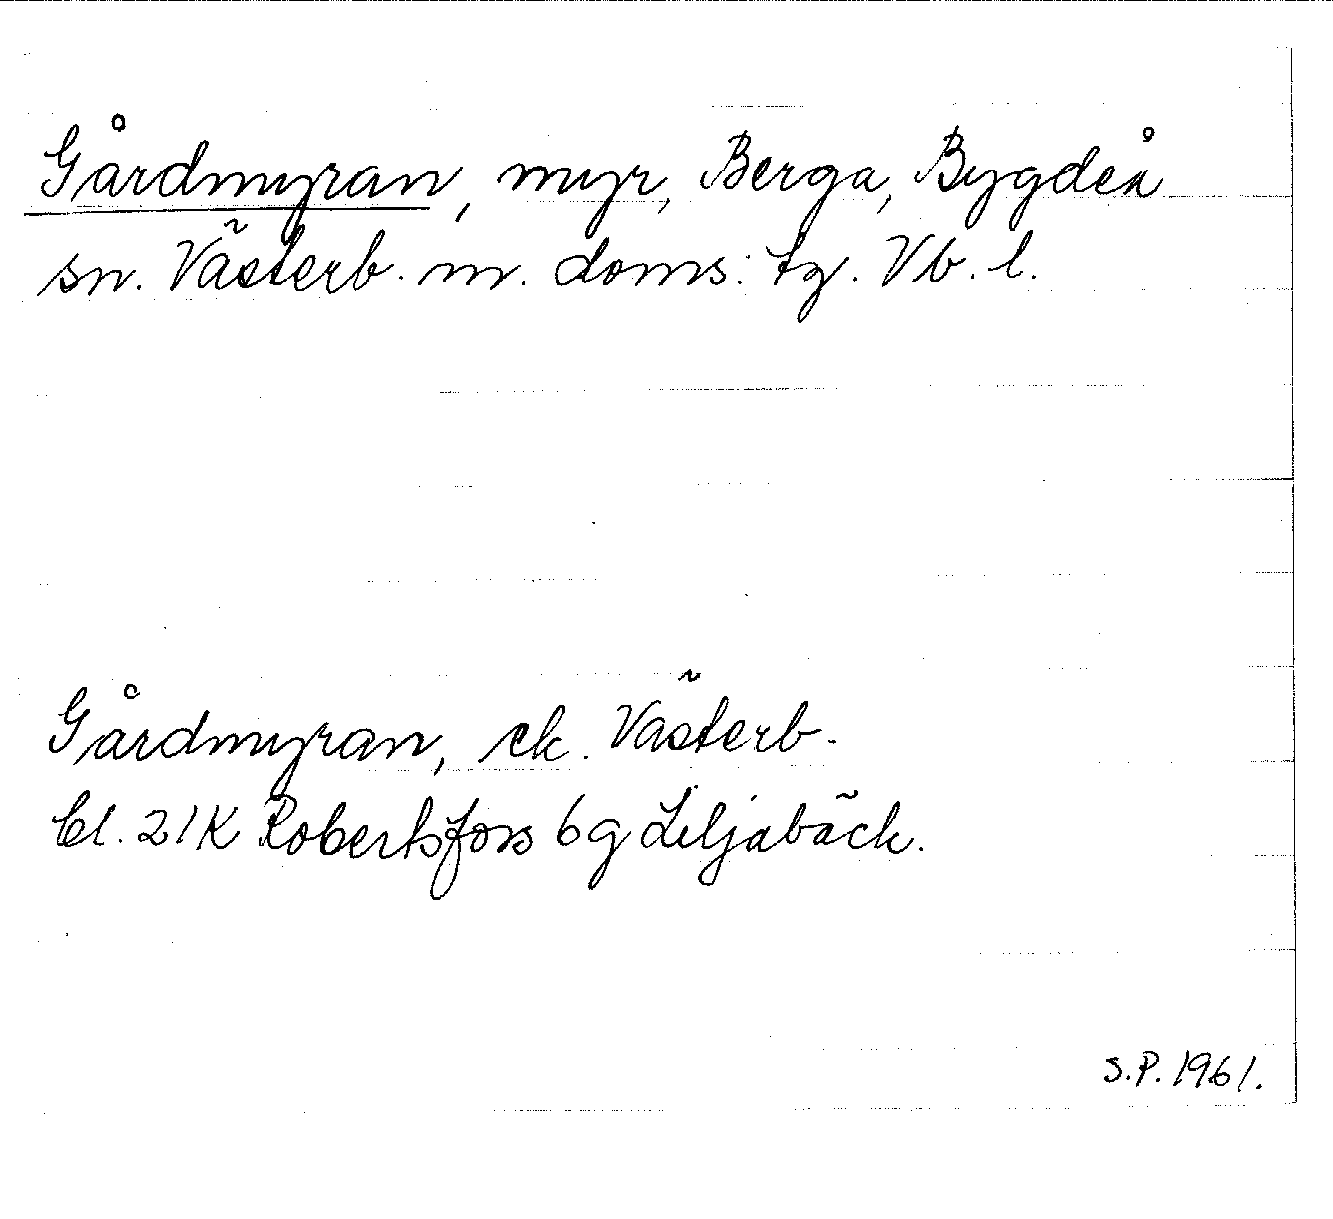 Gårdmyran, myr, Berga, Bygdeå
sn. Västerb. m. doms: tg. Vb. l.
Gårdmyran, ek. Västerb.
Bl. 21K Robertsfors 6g Liljabäck.
S.P. 1961.